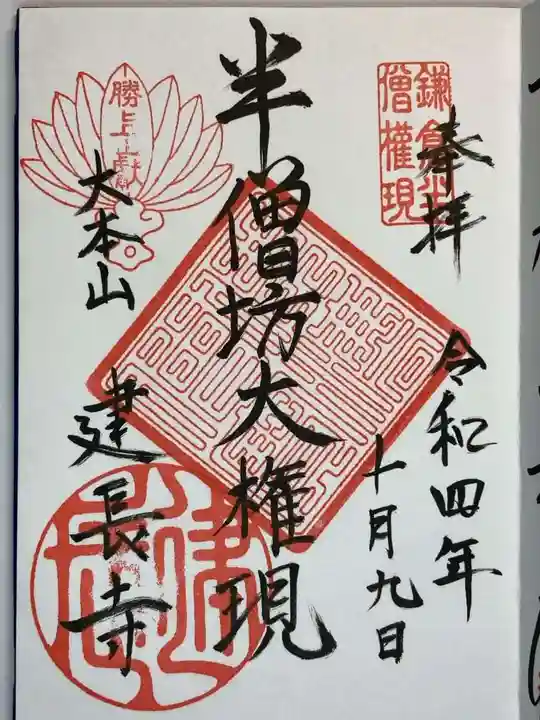 奉拝
令和四年
十月九日
半僧坊大権現
大本山
建長寺
鎌倉半
僧權現
勝上嶽